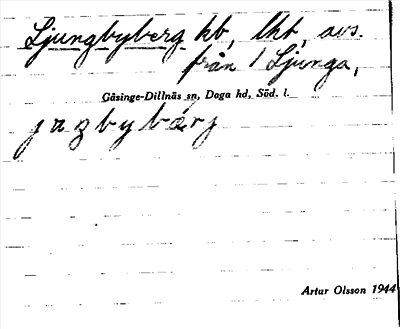 Ljungbyberg hb, lht, avs.
från 1 Ljunga,
Gåsinge-Dillnäs sn, Daga hd, Söd. l.
Artur Olsson 1944